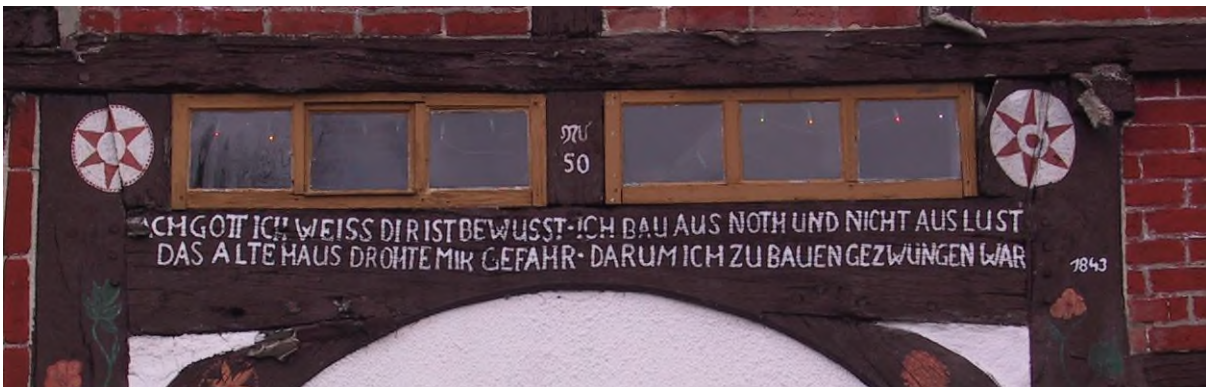 50
ACH GOTT ICH WEISS DIR IST BEWUSST · ICH BAU AUS NOTH UND NICHT AUS LUST
DAS ALTE HAUS DROHTE MIR GEFAHR · DARUM ICH ZU BAUEN GEZWUNGEN WAR
1843